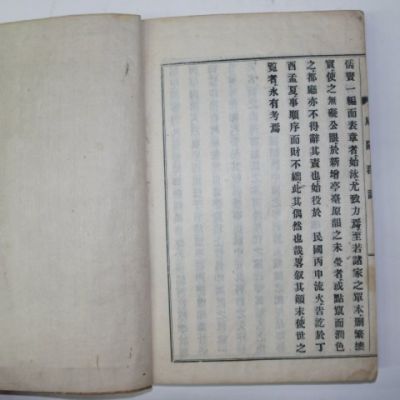 儒賢一編而表章者始泳尤致力焉至若諸家之單本刪繁摭
實使之無礙公眼於新增亭臺原韻之未甖者或點竄而潤色
之都廳亦不得辭其責也始投於 民國丙申流火告訖於丁
酉孟夏事順序而財不絀此其偶然也哉畧叙其顚末使世之
覧者永有考焉